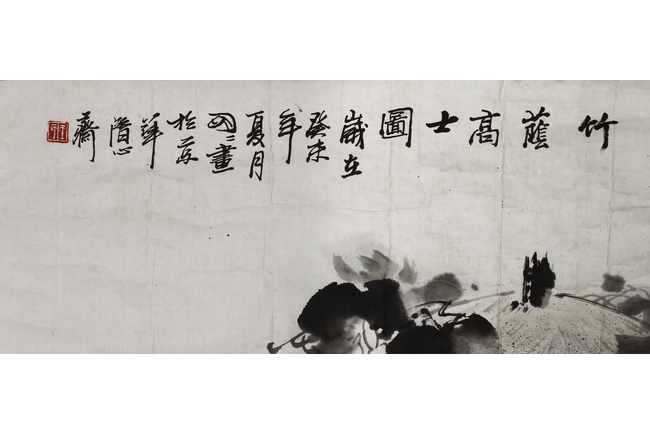 竹
蔭
高
士
圖
歲在
癸未
年
夏月
畫
於蘇
華
潛心
齋